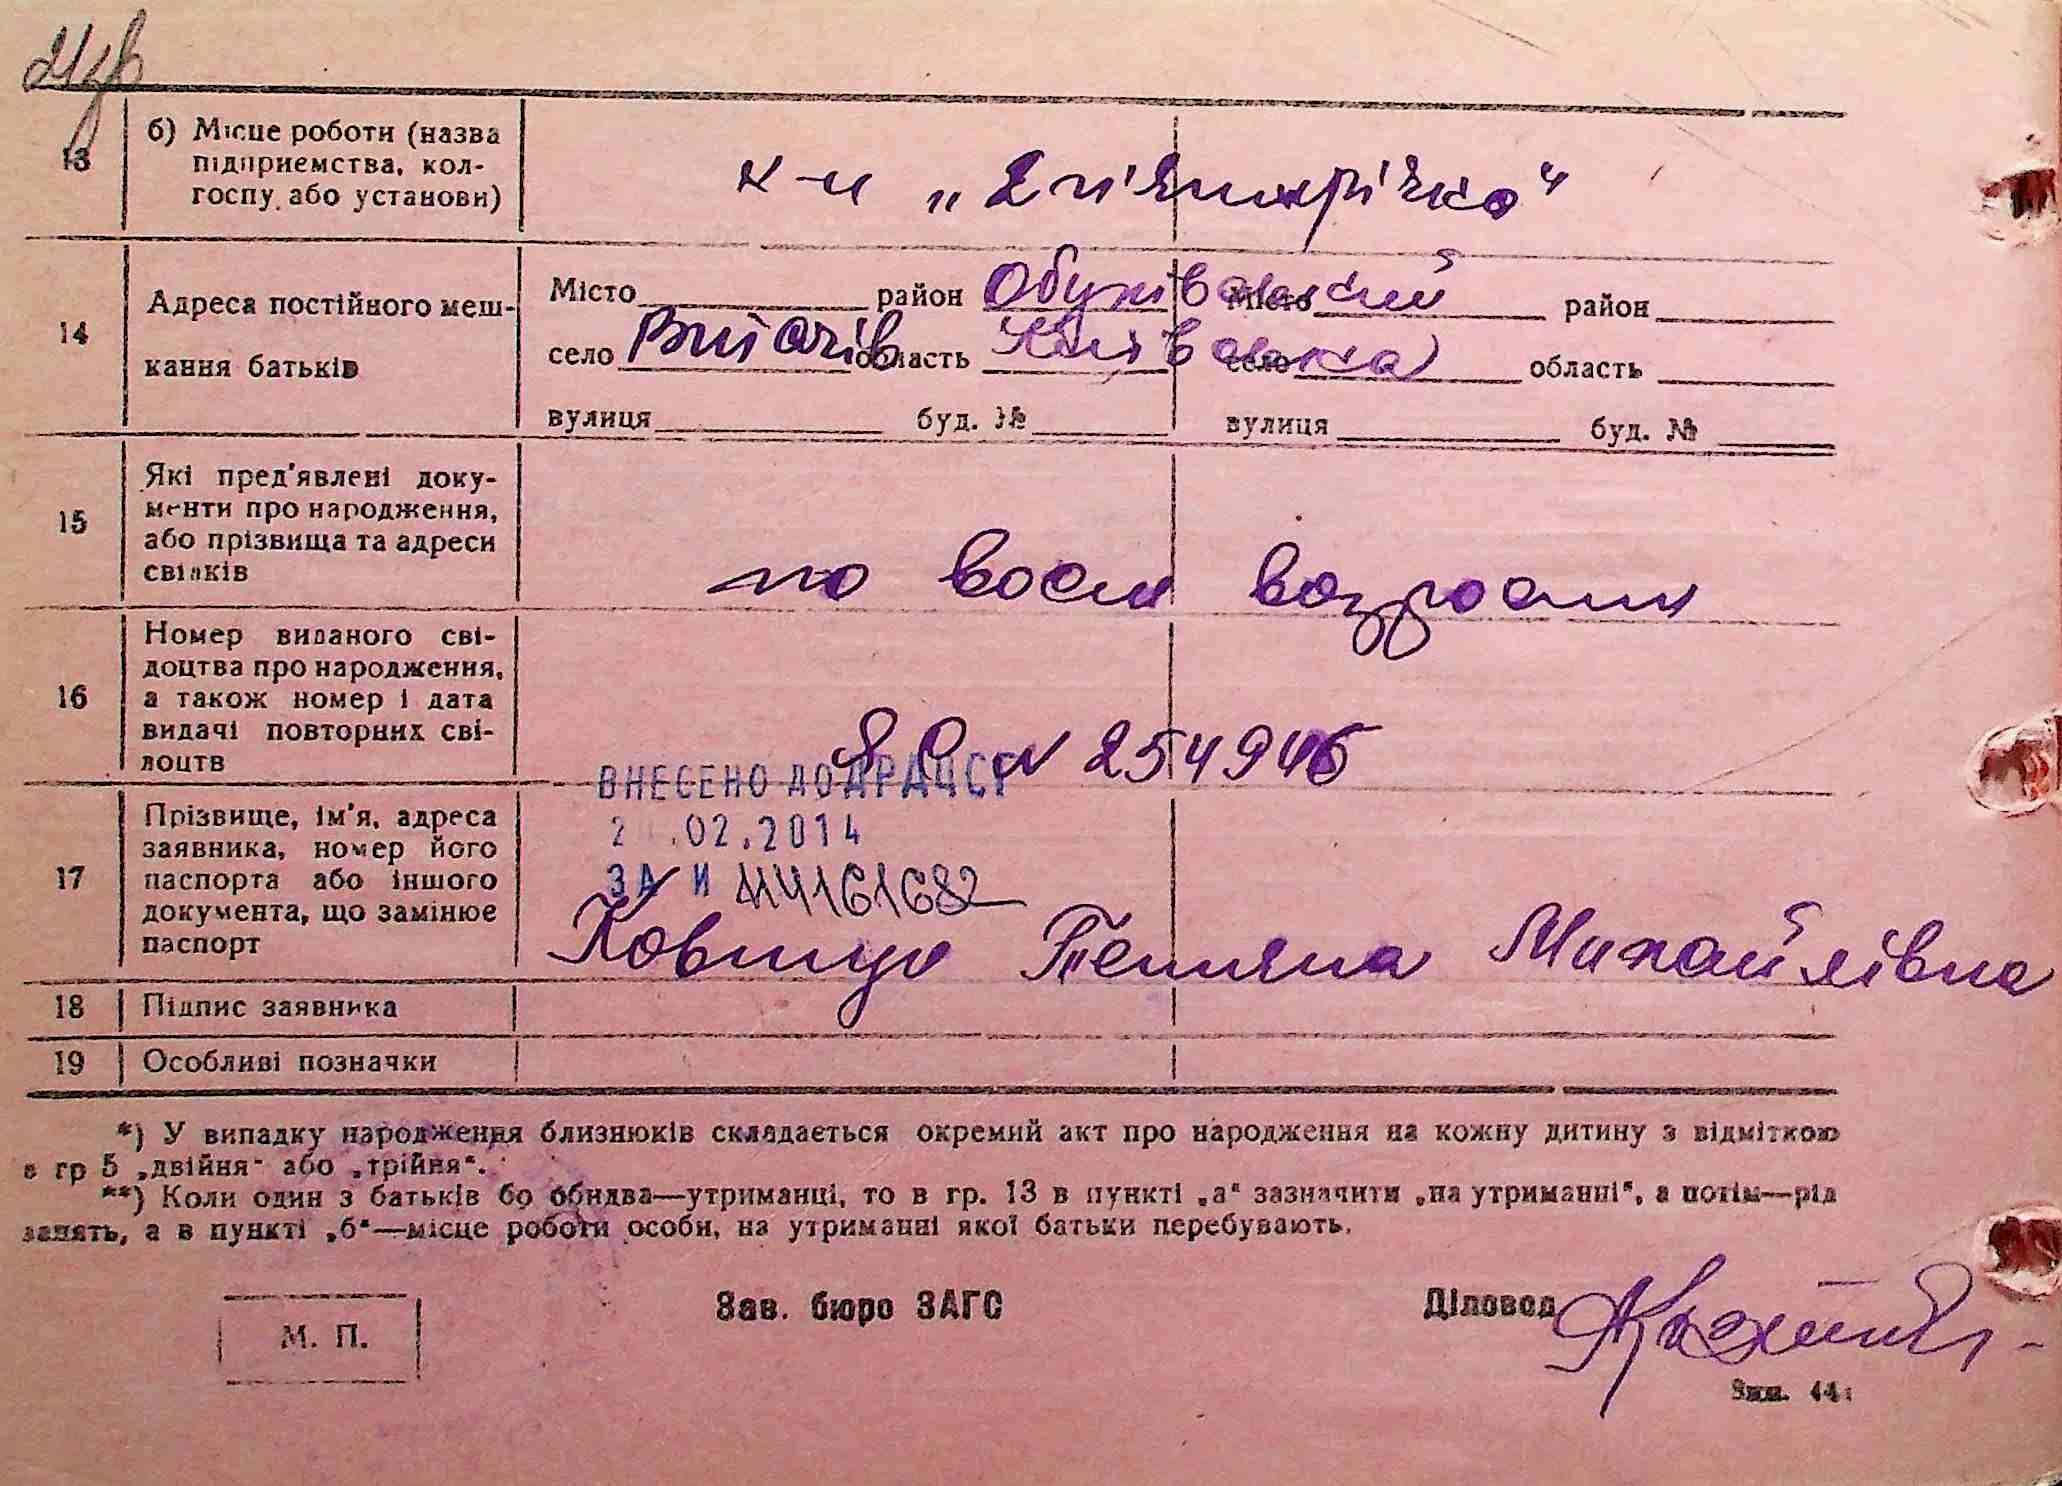 21 зв
13
б) Місце роботи (назва
підприємства, кол-
госпу, або установи)
к-п „Дп'ятирічка"
14
Адреса постійного меш-
кання батьків
Місто район Обухівський Місто район
село Витачів область Київська село область
вулиця буд. № вулиця буд. №
15
Які пред'явлені доку-
менти про народження,
або прізвища та адреси
свідків
по восм возросту
16
Номер виданого сві-
доцтва про народження,
а також номер і дата
видачі повторних сві-
доцтв
ЯО № 254946
ВНЕСЕНО ДО ДРАЦСГ
.02.2014
ЗА №
17
Прізвище, ім'я, адреса
заявника, номер його
паспорта або іншого
документа, що замінює
паспорт
Тетяна Михайлівна
18 Підпис заявника
19 Особливі позначки
*) У випадку народження близнюків складається окремий акт про народження на кожну дитину з відміткою
в гр 5 „двійня" або „трійня".
**) Коли один з батьків бо обидва—утриманці, то в гр. 13 в пункті „а" зазначити „на утриманні", а потім—рід
занять, а в пункті „б"—місце роботи особи, на утриманні якої батьки перебувають.
М. П.
Зав. бюро ЗАГС
Діловод
Зам. 44